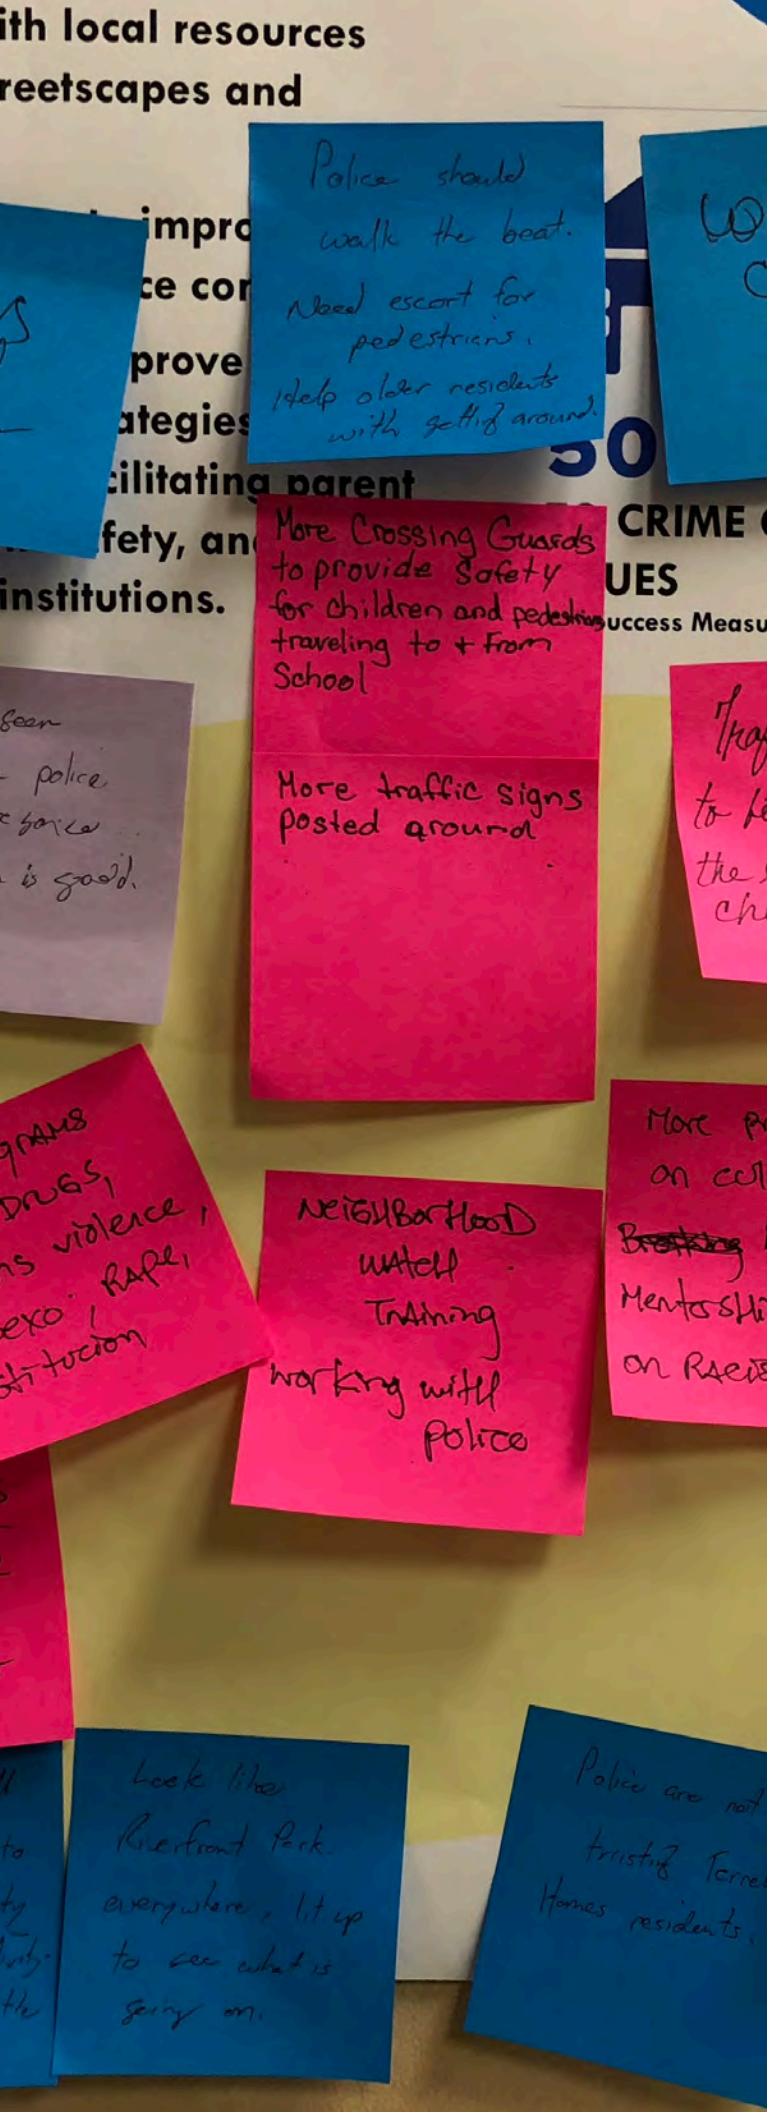 ith local resources
reetscapes and
impro
ce cor
prove
ategies
cilitating parent
fety, an
institutions.
Police should
walk the beat.
Need escort for
pedestrians.
Help older residents
with getting around.
50
CRIME
UES
uccess Measu
More Crossing Guards
to provide Safety
for children and pedestrians
traveling to + From
School
More traffic signs
posted around
seen
police
is good.
Traf
to
the
chi
grams
Drugs,
ns violence,
exo, Rape,
stitucion
Neighborhood
watch
Training
working with
police
More pr
on
Mentorshi
on Racis
Look like
Riverfront Park
everywhere, lit up
to see what is
going on.
Police are not
trusting Terre
Homes residents.